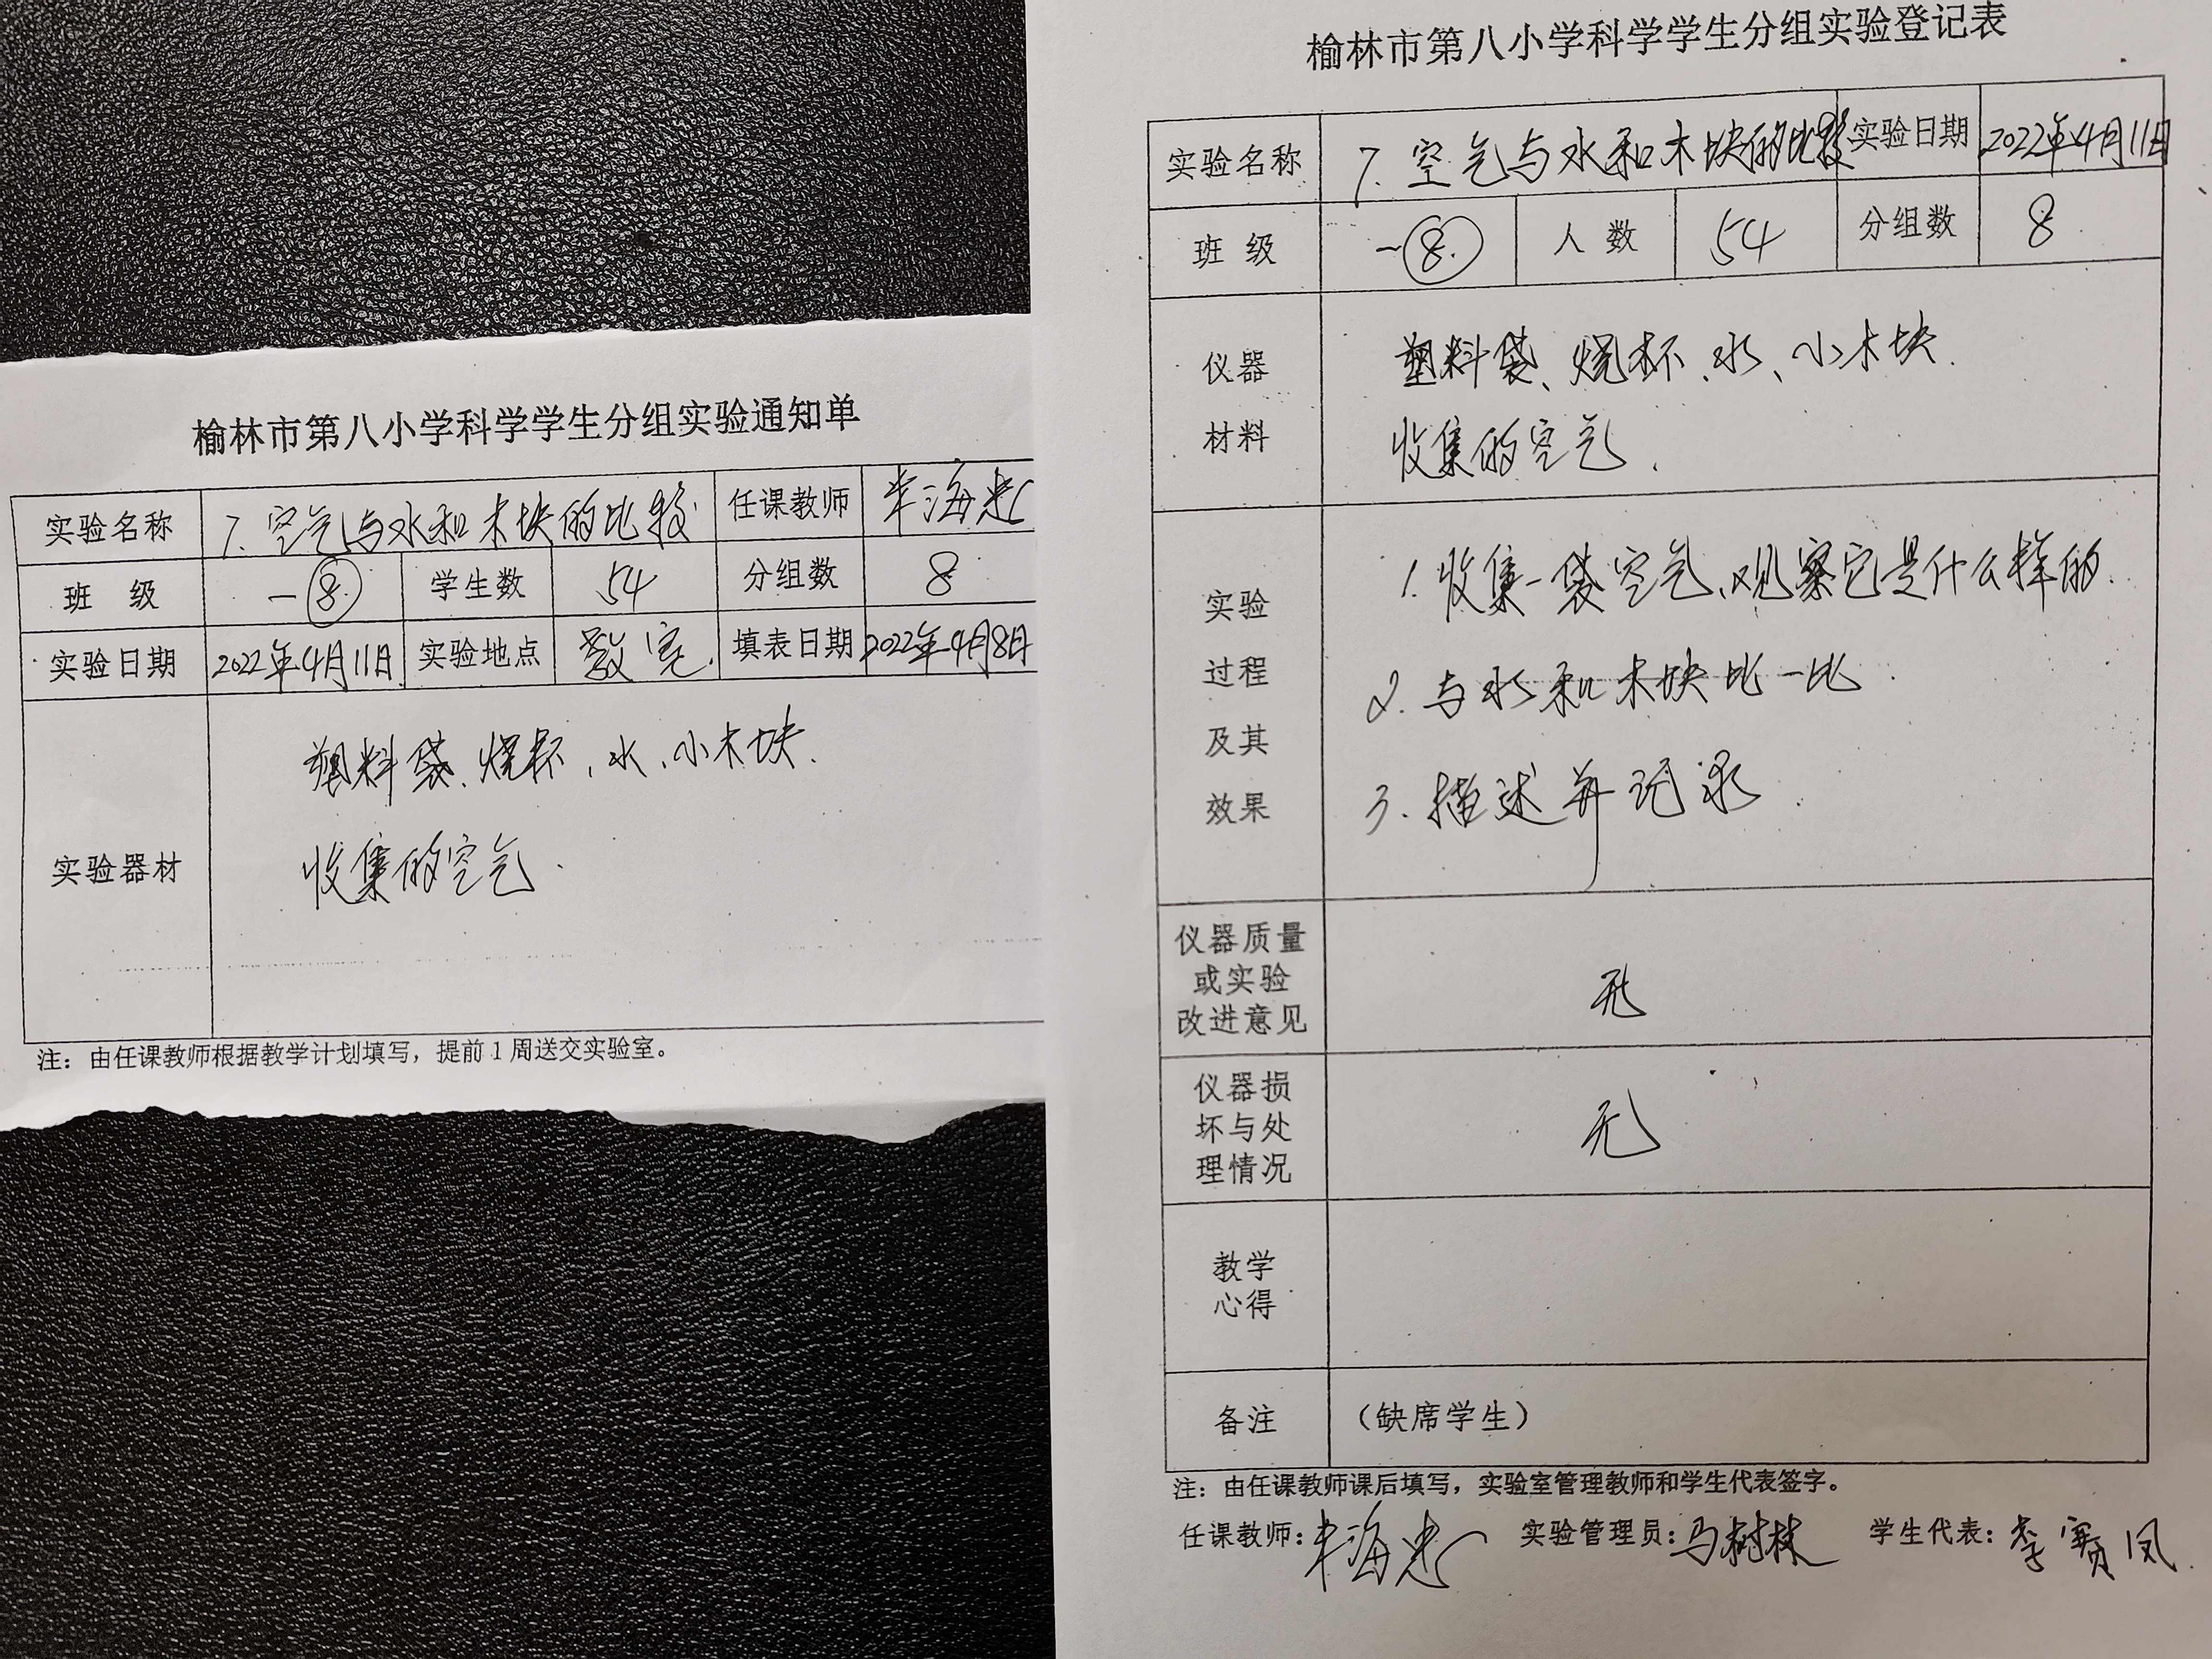 榆林市第八小学科学学生分组实验通知单
实验名称 7.空气与水和木块的比较 任课教师 海忠
班 级 一⑧ 学生数 54 分组数 8
实验日期 2022年4月11日 实验地点 教室 填表日期 2022年4月8日
实验器材
塑料袋、烧杯、水、小木块.
收集的空气.
注：由任课教师根据教学计划填写，提前1周送交实验室。
榆林市第八小学科学学生分组实验登记表
实验名称 7.空气与水和木块的比较 实验日期 2022年4月11日
班 级 一⑧ 人 数 54 分组数 8
仪器
材料
塑料袋、烧杯、水、小木块.
收集的空气.
实验
过程
及其
效果
1.收集一袋空气、观察它是什么样的.
2.与水和木块比一比.
3.描述并记录.
仪器质量
或实验
改进意见
无
仪器损
坏与处
理情况
无
教学
心得
备注 （缺席学生）
注：由任课教师课后填写，实验室管理教师和学生代表签字。
任课教师：海忠 实验管理员：马树林 学生代表：李赛凤